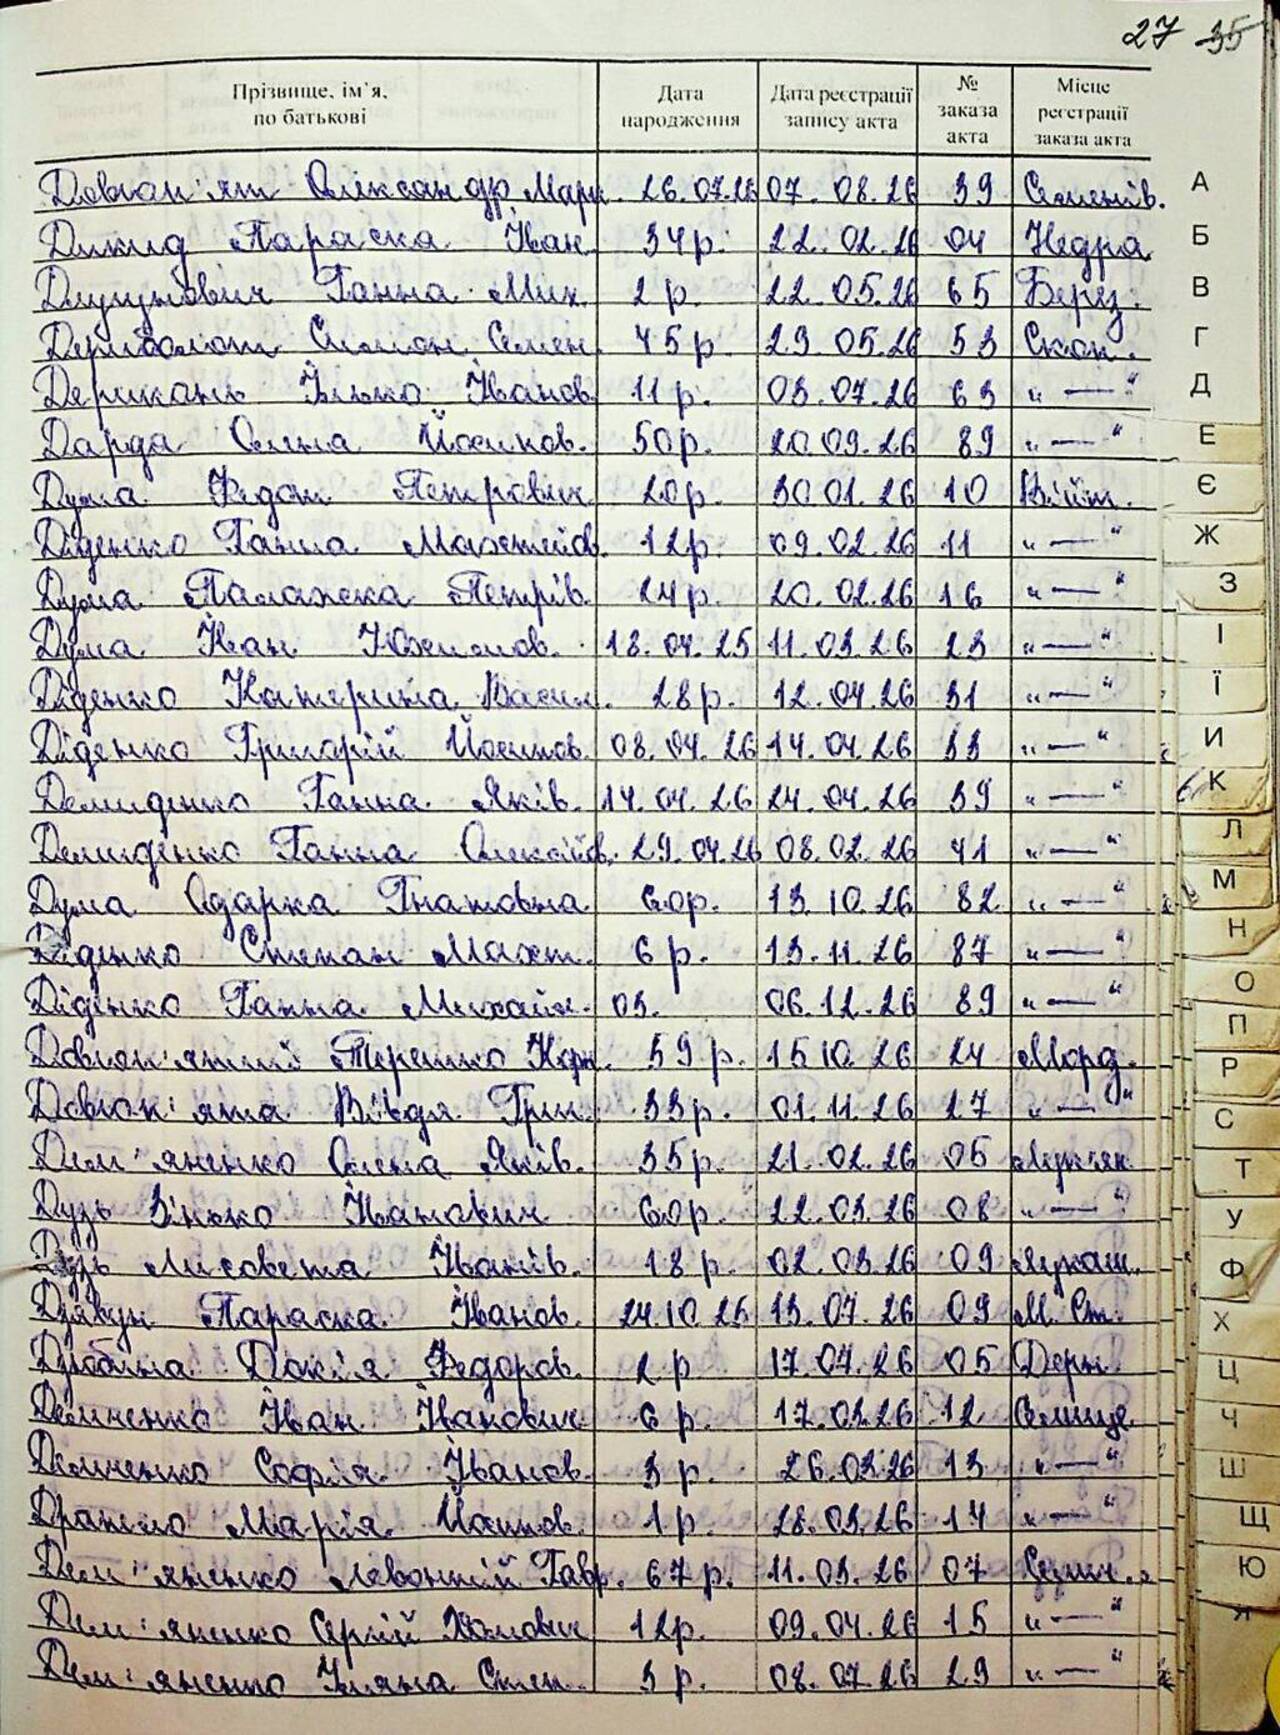 27 35
Прізвище, ім'я, по батькові Дата народження Дата реєстрації запису акта № заказа акта Місце реєстрації заказа акта
Довгоп'ят Олександр Марк. 26.07.26 07.08.26 39 Семенів.
Дикид Параска Іван. 34р. 22.02.26 04 Недра
Ганна Мих. 2р. 22.05.26 65 Берез.
Семен. 45р. 29.05.26 53 Скоп.
Дерикань Ілько Іванов. 11р. 03.07.26 63 "—"
Дарда Олена Йосипов. 50р. 20.09.26 89 "—"
Дума Федот Петрович 20р. 30.01.26 10 Війт.
Діденко Ганна Махтейов. 12р. 09.02.26 11 "—"
Дума Палажка Петрів. 24р. 20.02.26 16 "—"
Дума Іван Юхимов. 18.04.25 11.03.26 23 "—"
Діденко Катерина Васил. 28р. 12.04.26 31 "—"
Діденко Григорій Йосипов. 08.04.26 14.04.26 33 "—"
Демиденко Ганна Яків. 14.04.26 24.04.26 39 "—"
Демиденко Ганна Олексійов. 29.04.26 08.02.26 41 "—"
Дума Одарка Гнатовна 60р. 13.10.26 82 "—"
Діденко Степан Махт. 6р. 13.11.26 87 "—"
Діденко Ганна Михайл. 03. 06.12.26 89 "—"
Довгоп'ятий Терешко Корн. 59р. 15.10.26 24 Морд.
Довгоп'ята Вівдя Григ. 33р. 01.11.26 27 "—"
Дем'яненко Олена Яків. 35р. 21.02.26 06 Лук'ян.
Дузь Зінько Іванович 60р. 22.03.26 08 "—"
Дузь Лисовета Іванів. 18р. 02.03.26 09 Лукаш.
Дзявун Параска Іванов. 24.10.25 13.07.26 09 М. Ст.
Докія Федоров. 2р 17.07.26 05 Дерн.
Демченко Іван Іванович 6р. 17.03.26 12 Селище
Демченко Софія Іванов. 3р. 26.03.26 13 "—"
Марія Йосипов. 1р. 28.03.26 14 "—"
Дем'яненко Левонтій Гавр. 67р. 11.03.26 07 Сезин.
Дем'яненко Сергій Хомович 12р. 09.04.26 15 "—"
Дем'яненко Уляна Степ. 3р. 08.07.26 29 "—"
А
Б
В
Г
Д
Е
Є
Ж
З
І
Ї
И
К
Л
М
Н
О
П
Р
С
Т
У
Ф
Х
Ц
Ч
Ш
Щ
Ю
Я